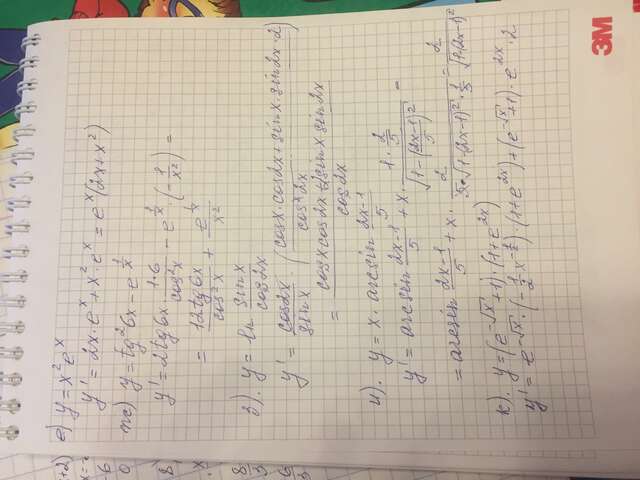 е) y = x² e^x
y' = 2x · e^x + x² · e^x = e^x (2x + x²)
ж) y = tg² 6x − e^(1/x)
y' = 2tg 6x · (1·6)/(cos² x) − e^(1/x) · (−1/x²) =
= (12 tg 6x)/(cos² x) + (e^(1/x))/(x²)
з). y = ln (sin x)/(cos 2x)
y' = (cos 2x)/(sin x) · (cos x · cos 2x + sin x · sin 2x · 2)/(cos² 2x)
= (cos x cos 2x + 2 sin x sin 2x)/(cos 2x)
и). y = x · arcsin (2x−1)/5
y' = arcsin (2x−1)/5 + x · (1 · 2/5)/√(1−((2x−1)/5)²) =
= arcsin (2x−1)/5 + x ·
к). y = (e^(−√x) + 1) · (1 + e^(2x))
y' = e^(−√x) · (−1/2 · x^(−1/2)) · (1 + e^(2x)) + (e^(−√x) + 1) · e^(2x) · 2
3M